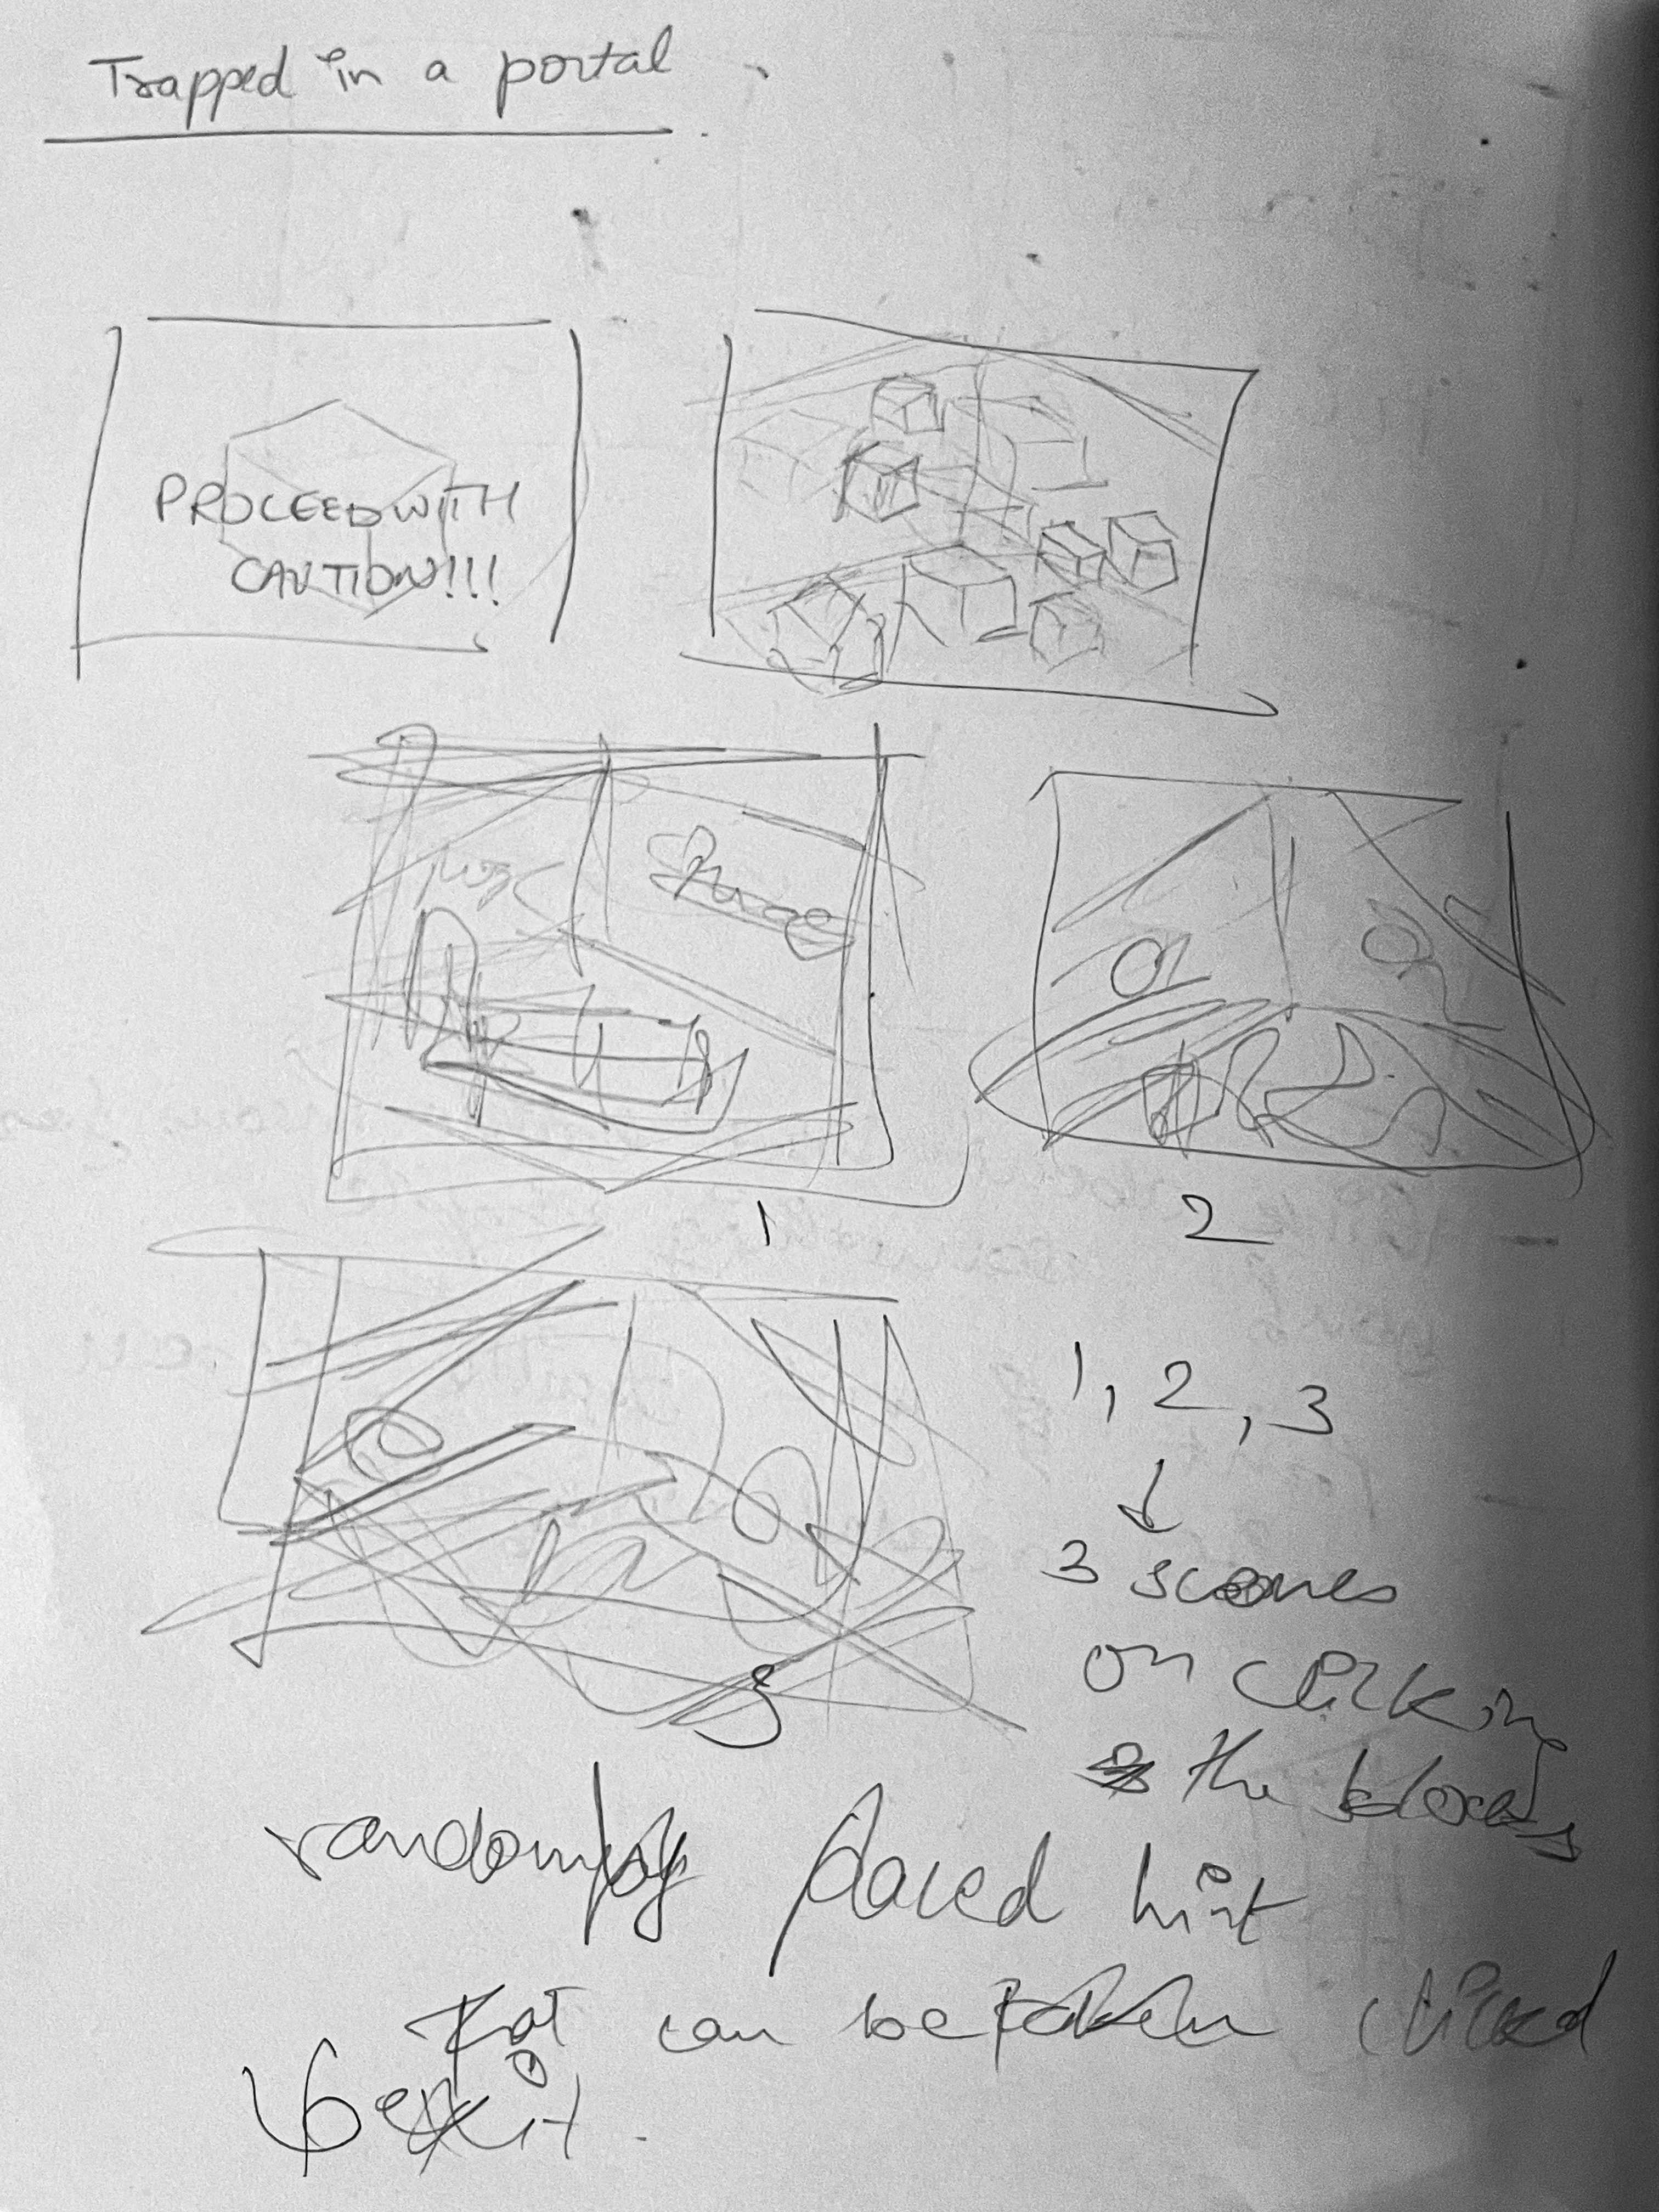 Trapped in a portal
PROCEED WITH
CAUTION!!!
1
2
1, 2, 3
3 scenes
on clicking
the
3
randomly placed hint
that can be clicked
exit.